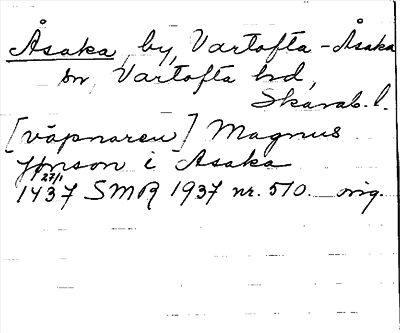 Åsaka, by, Vartofta-Åsaka
sn, Vartofta hd,
Skarab. l.
[väpnaren] Magnus
Jonson i Asaka
27/1
1437 SMR 1937 nr. 510. orig.